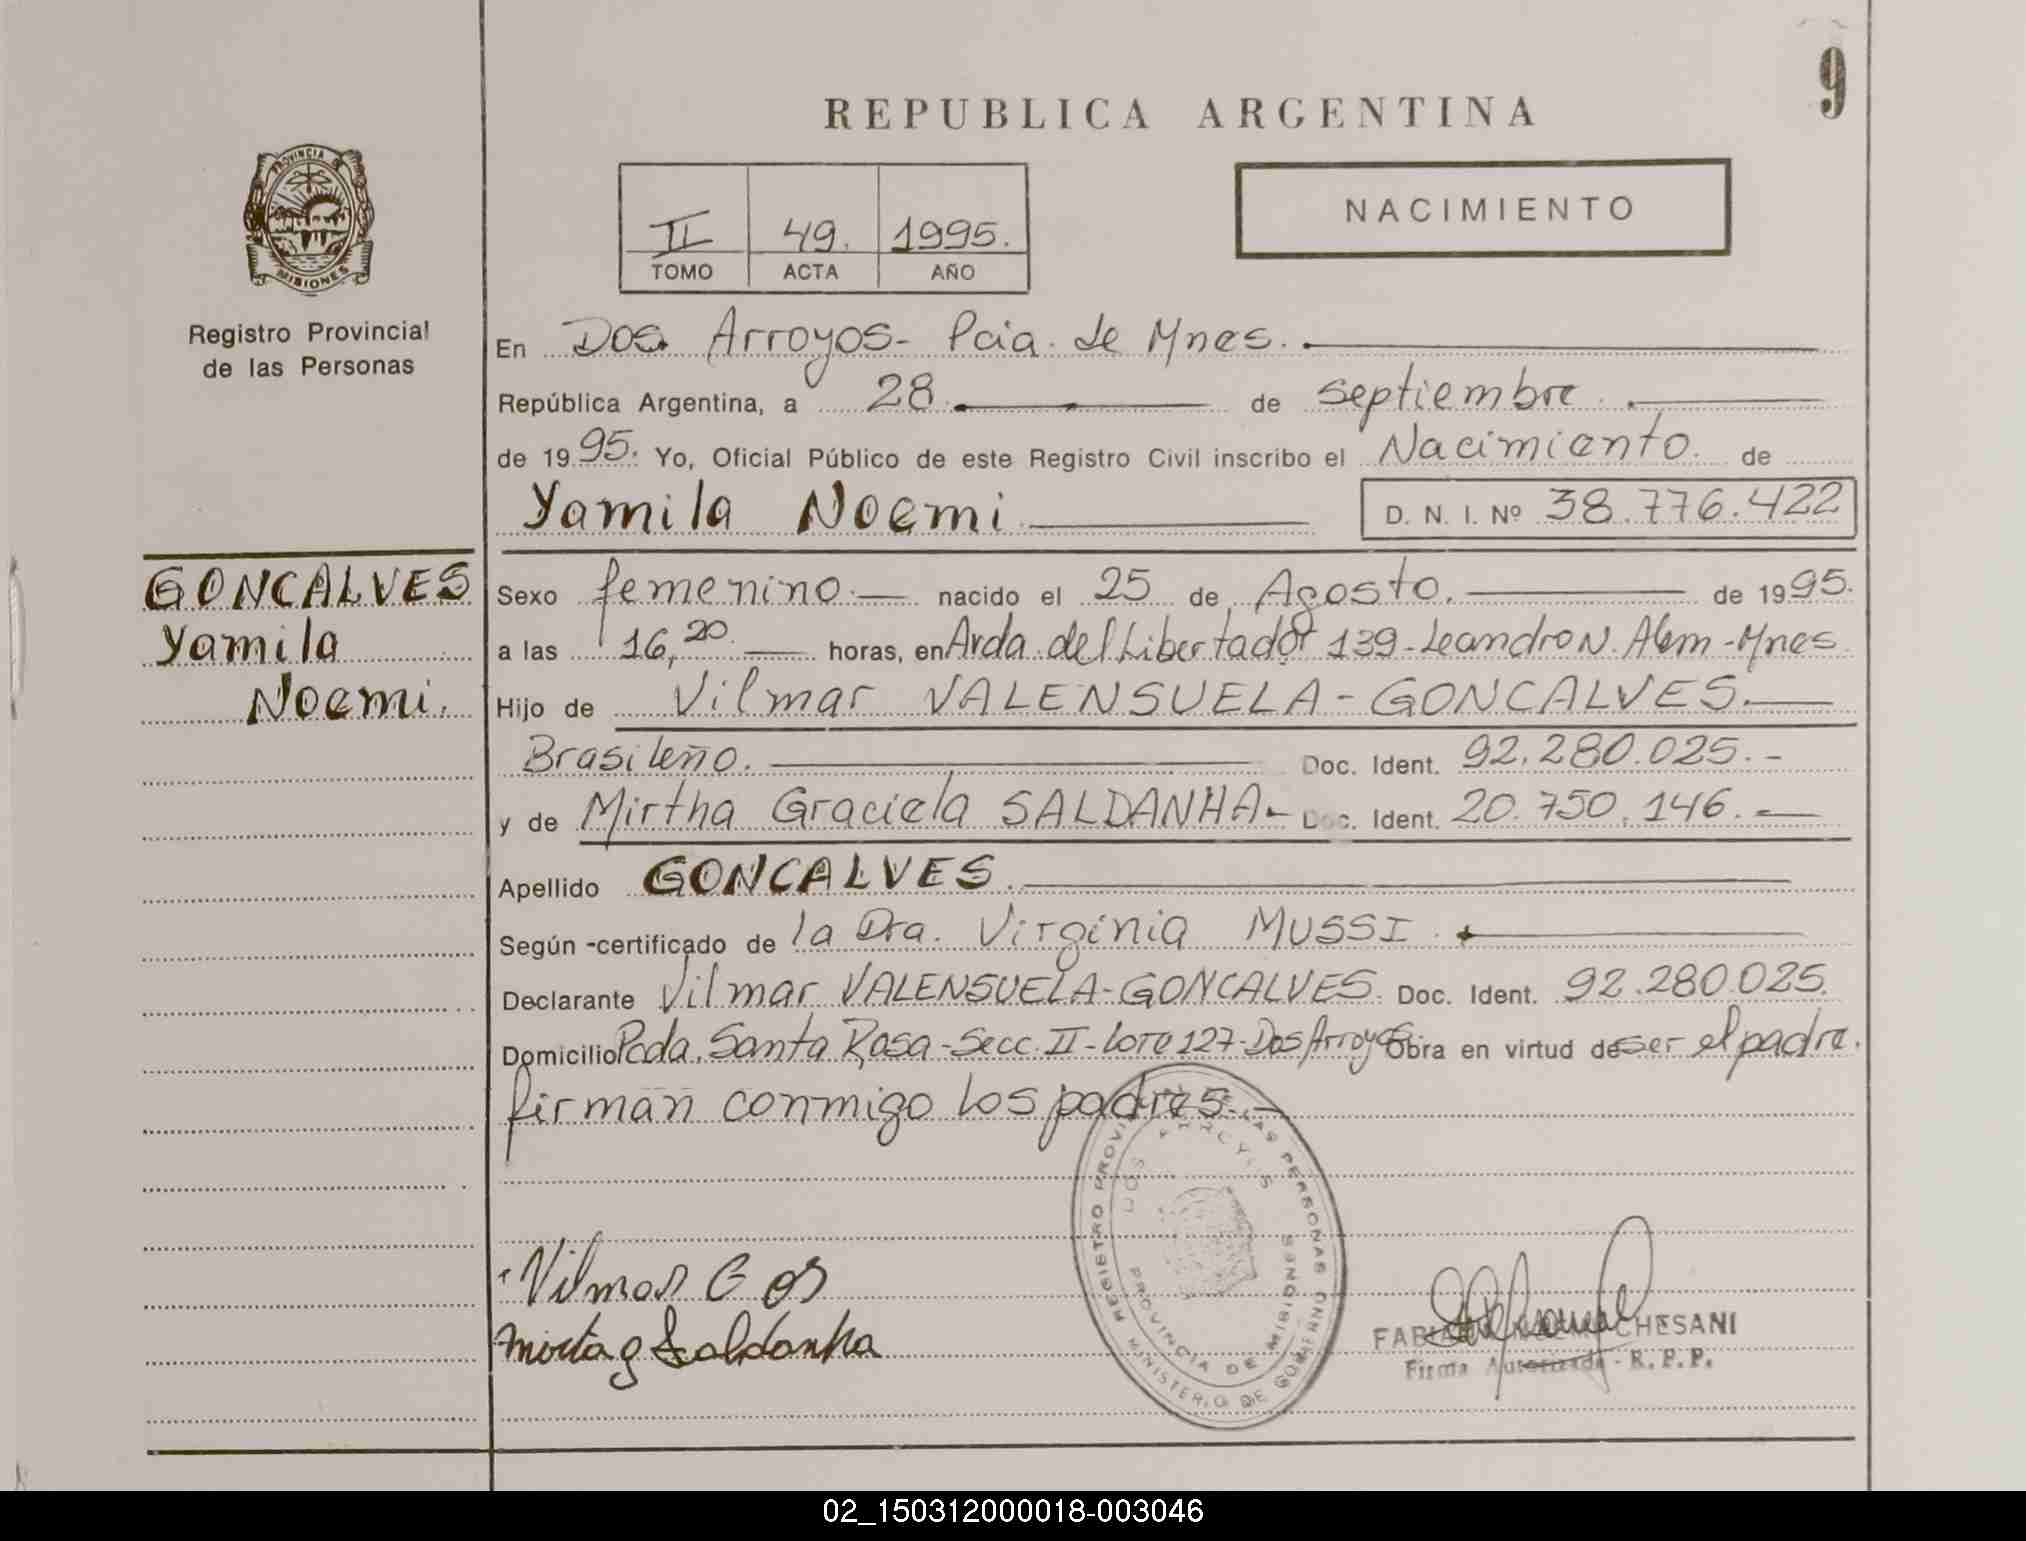 9
REPUBLICA ARGENTINA
PROVINCIA DE
MISIONES
Registro Provincial
de las Personas
II 49. 1995.
TOMO ACTA AÑO
NACIMIENTO
En Dos Arroyos- Pcia. de Mnes.
República Argentina, a 28 de septiembre
de 1995. Yo, Oficial Público de este Registro Civil inscribo el Nacimiento. de
Yamila Noemi D. N. I. Nº 38.776.422
GONCALVES
Yamila
Noemi.
Sexo femenino. nacido el 25 de Agosto. de 1995.
a las 16,20. horas, en Avda. del Libertador 139-Leandro N. Alem-Mnes.
Hijo de Vilmar VALENSUELA-GONCALVES.
Brasileño. Doc. Ident. 92.280.025.-
y de Mirtha Graciela SALDANHA- Doc. Ident. 20.750.146.
Apellido GONCALVES.
Según -certificado de la Dra. Virginia MUSSI.
Declarante Vilmar VALENSUELA-GONCALVES. Doc. Ident. 92.280.025.
Domicilio Pcda. Santa Rosa-Secc. II-Lote 127-Dos Arroyos Obra en virtud de ser el padre.
firman conmigo los padres.-
REGISTRO PROVINCIAL DE LAS PERSONAS
MINISTERIO DE GOBIERNO
DOS ARROYOS
PROVINCIA DE MISIONES
Vilmar G
Mirta g Saldanha
CHESANI
Firma Autorizada - R. P. P.
02_150312000018-003046